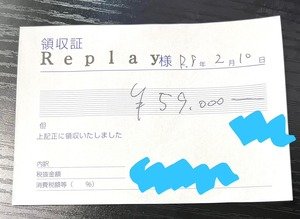 領収証
Replay様 R.8年2月10日
¥59,000—
但
上記正に領収いたしました
内訳
税抜金額
消費税額等（　％）